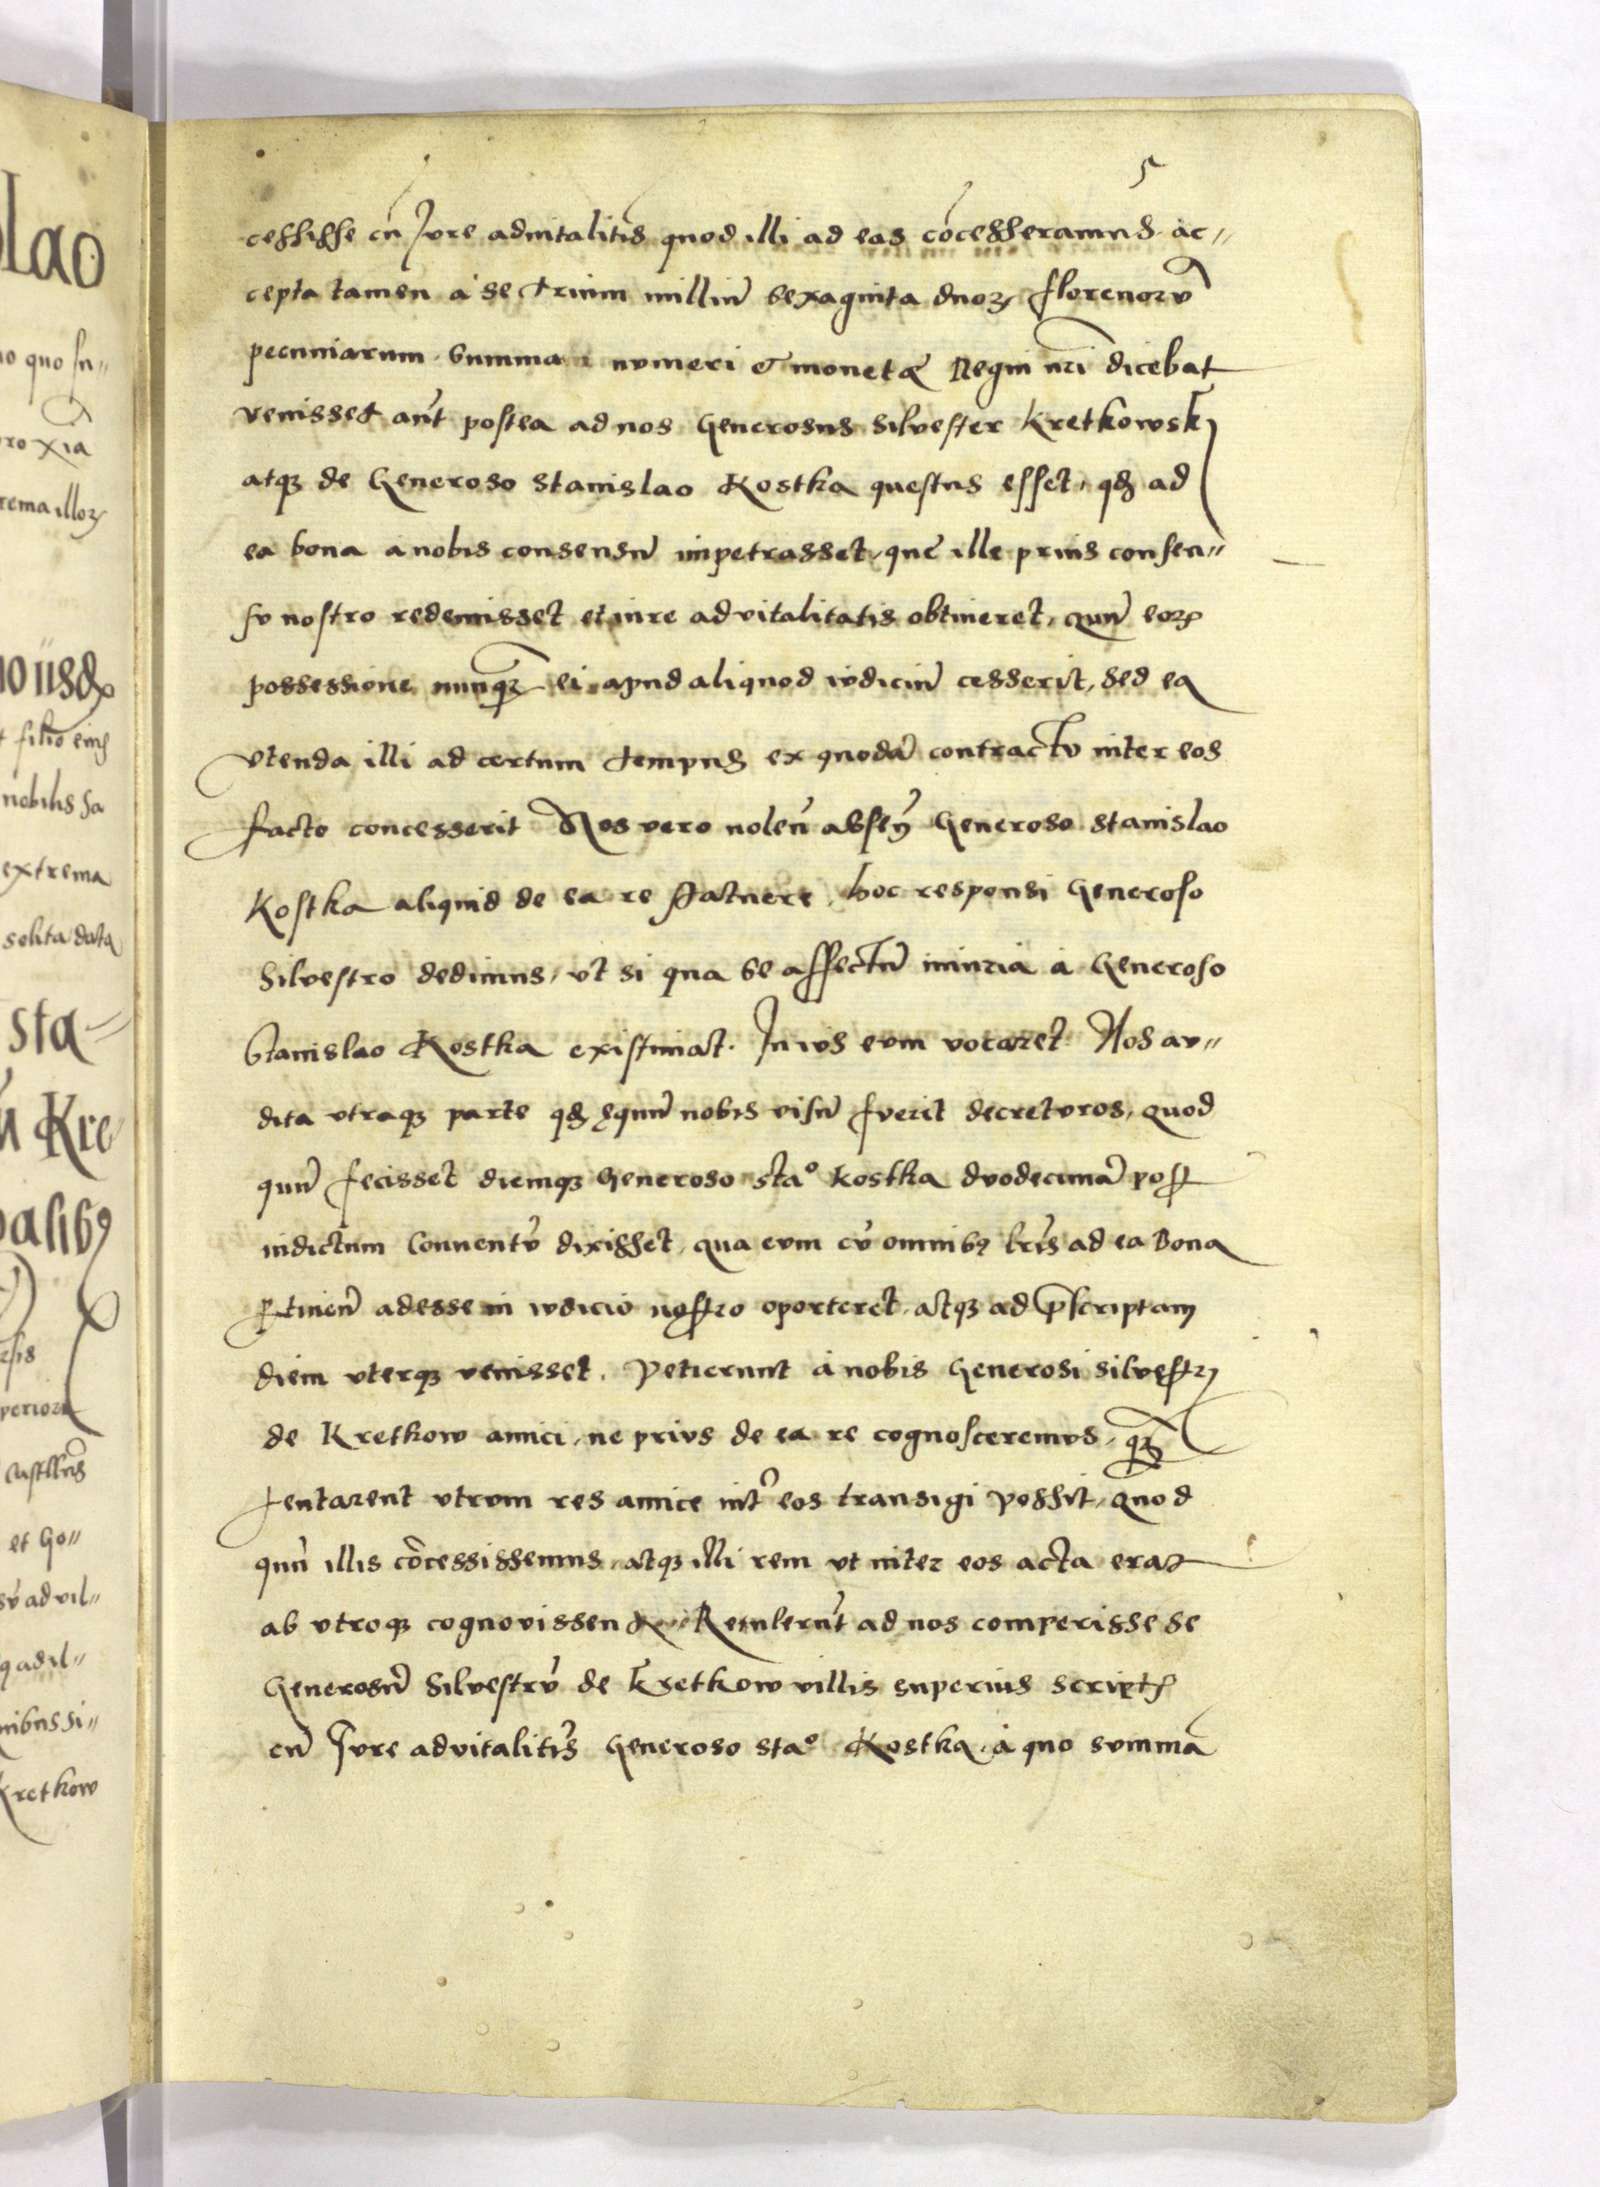 5
cessisse cũ Jure aduitalitis quod illi ad eas cõcesseramus ac〃
cepta tamen à se trium milliũ sexaginta duoꝝ florenorũ
pecuniarum summa numeri & monetæ Regni nr̃i dicebat
venisset aũt postea ad nos Generosus Siluester Kretkowskj
atqꝫ de Generoso Stanislao Kostka questus esset, qđ ad
ea bona a nobis consensũ impetrasset, quẽ ille prius consen〃
su nostro redemisset et iure aduitalitatis obtineret, Quũ eoꝝ
possessione nunqꝫ ei apud aliquod iudiciũ cesserit, Sed ea
vtenda illi ad certum tempus ex quodã contractu inter eos
facto concesserit Nos vero nolẽn absẽn Generoso Stanislao
Kostka aliquid de ea re statuere, hoc responsi Generoso
Siluestro dedimus, vt si qua se affectũ iniuriã à Generoso
Stanislao Kostka existimat. In ius eum vocaret Nos au〃
dita vtraqꝫ parte qđ ęquũ nobis visũ fuerit decreturos, Quod
quũ fecisset diemqꝫ Generoso Sta° Kostka duodecimã post
indictum Conuentũ dixisset, qua eum cũ omnibꝰ lr̃is ad ea Bona
ꝑtineñ adesse in iudicio nostro oporteret, atqꝫ ad p̃scriptam
diem vterqꝫ venisset. Petierunt à nobis Generosi Siluestrj
de Kretkow amici, ne prius de ea re cognosceremus, qꝫ
tentarent vtrum res amice int̃ eos transigi possit, Quod
quũ illis cõcessissemus, atqꝫ illi rem vt inter eos acta erat
ab vtroqꝫ cognouissent Retulerũt ad nos comperisse se
Generosũ Siluestrũ de Kretkow villis superius scriptꝭ
cũ Jure aduitalitis Generoso Sta° Kostka, à quo summã